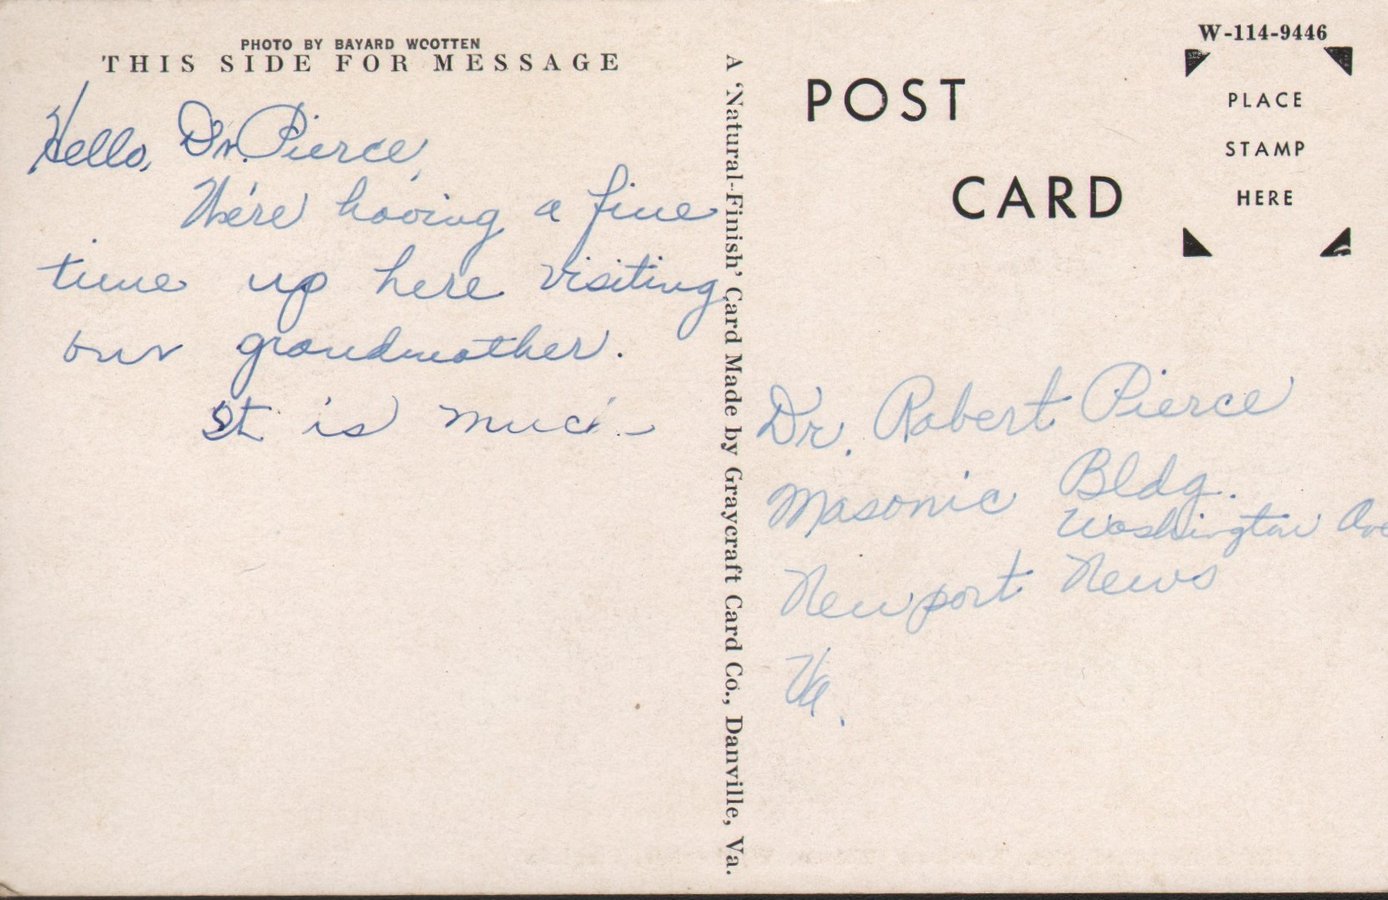 PHOTO BY BAYARD WOOTTEN
THIS SIDE FOR MESSAGE
Hello, Dr. Pierce,
We're having a fine
time up here visiting
our grandmother.
It is much
A 'Natural-Finish' Card Made by Graycraft Card Co., Danville, Va.
W-114-9446
POST
CARD
PLACE
STAMP
HERE
Dr. Robert Pierce
Masonic Bldg.
Washington Ave
Newport News
Va.